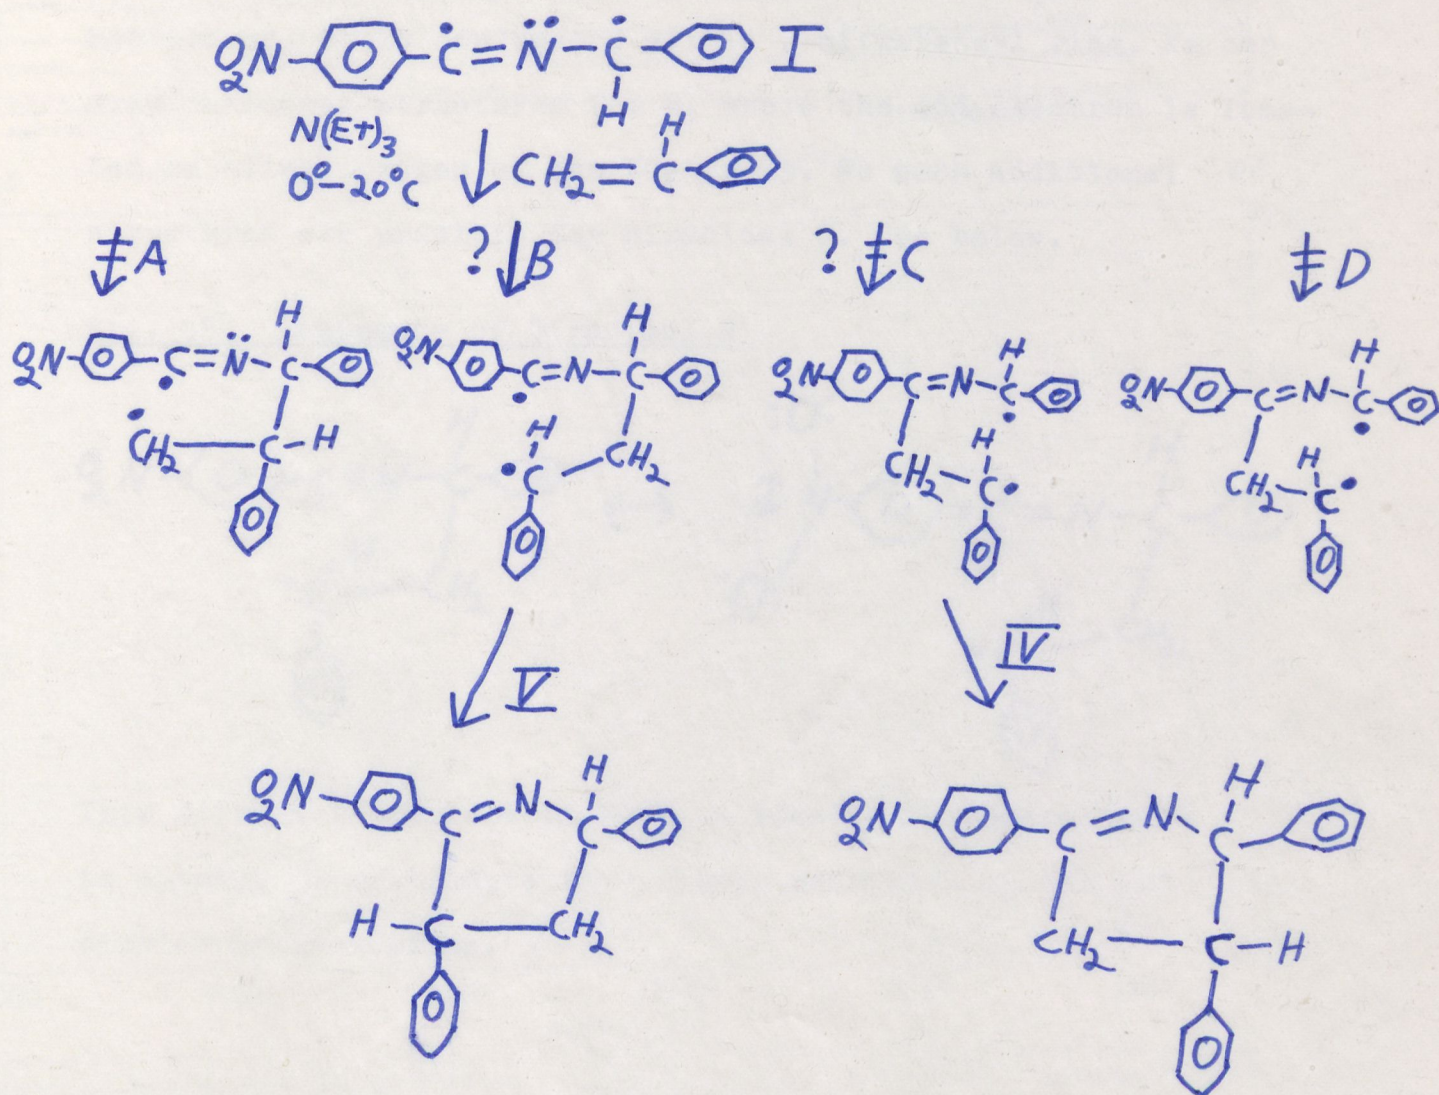 O2N–C=N̈–C– I
H
N(Et)3
0°–20°C
H
CH2=C–
A
? B
? C
D
H
O2N C=N̈ C
CH2 C–H
H
O2N C=N–C
H
C CH2
H
O2N C=N–C
H
CH2–C
H
O2N C=N–C
H
CH2–C
V
IV
H
O2N C=N C
H–C CH2
H
O2N C=N C
CH2 C–H